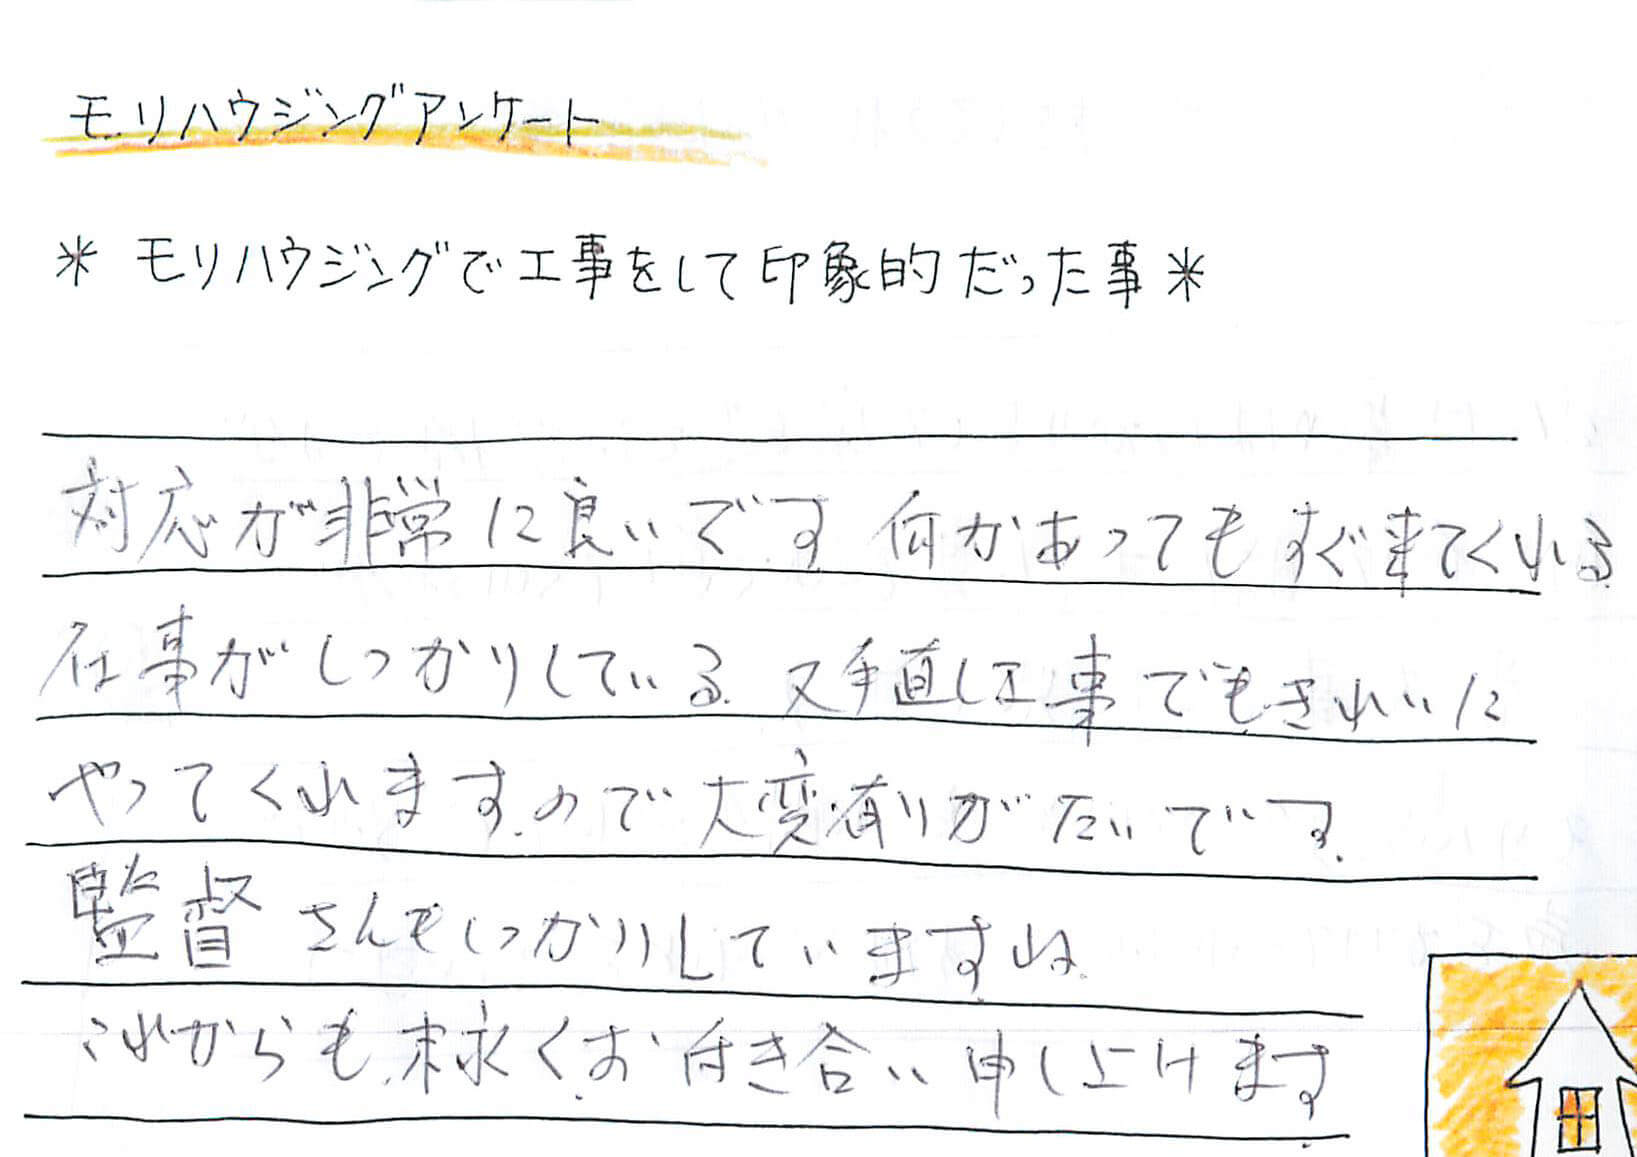 モリハウジングアンケート
* モリハウジングで工事をして印象的だった事 *
対応が非常に良いです 何かあってもすぐ来てくれる
仕事がしっかりしている. 又手直し工事でもきれいに
やってくれますので大変有りがたいです.
監督さんもしっかりしていますね.
これからも末永くお付き合い申し上けます.